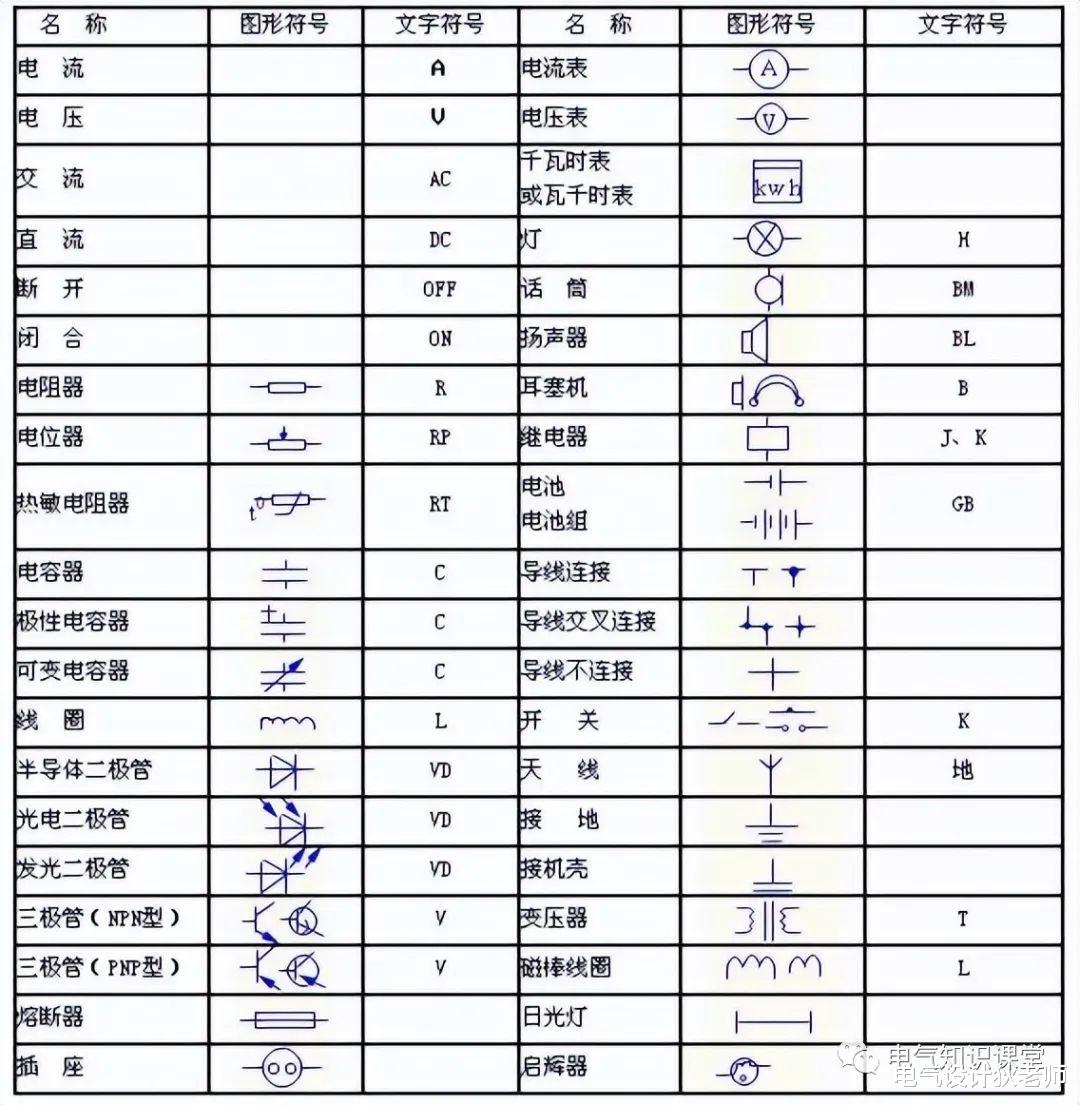 名 称 图形符号 文字符号 名 称 图形符号 文字符号
电 流 A 电流表 A
电 压 V 电压表 V
交 流 AC 千瓦时表
或瓦千时表 kwh
直 流 DC 灯 H
断 开 OFF 话 筒 BM
闭 合 ON 扬声器 BL
电阻器 R 耳塞机 B
电位器 RP 继电器 J、K
热敏电阻器 t0 RT 电池
电池组 GB
电容器 C 导线连接
极性电容器 C 导线交叉连接
可变电容器 C 导线不连接
线 圈 L 开 关 K
半导体二极管 VD 天 线 地
光电二极管 VD 接 地
发光二极管 VD 接机壳
三极管(NPN型) V 变压器 T
三极管(PNP型) V 磁棒线圈 L
熔断器 日光灯
插 座 启辉器
电气知识课堂
电气设计狄老师